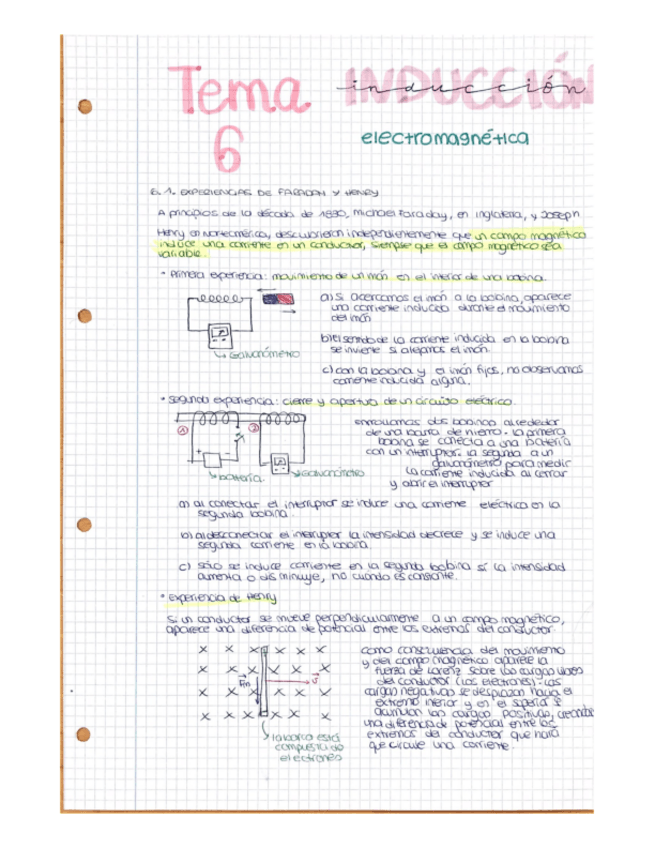 Tema 6
INDUCCIÓN
inducción
electromagnética
6.1. EXPERIENCIAS DE FARADAY Y HENRY
A principios de la década de 1830, Michael Faraday, en Inglaterra, y Joseph
Henry en Norteamérica, descubrieron independientemente que un campo magnético
induce una corriente en un conductor, siempre que el campo magnético sea
variable.
• Primera experiencia: movimiento de un imán en el interior de una bobina.
a) Si acercamos el imán a la bobina, aparece
una corriente inducida durante el movimiento
del imán
b) El sentido de la corriente inducida en la bobina
se invierte si alejamos el imán.
c) con la bobina y el imán fijos, no observamos
corriente inducida alguna.
Galvanómetro
• Segunda experiencia: cierre y apertura de un circuito eléctrico.
1
2
+
-
batería
Galvanómetro
enrollamos dos bobinas alrededor
de una barra de hierro. La primera
bobina se conecta a una batería
con un interruptor. la segunda a un
galvanómetro para medir
la corriente inducida al cerrar
y abrir el interruptor
a) al conectar el interruptor se induce una corriente eléctrica en la
segunda bobina.
b) al desconectar el interruptor la intensidad decrece y se induce una
segunda corriente en la bobina.
c) sólo se induce corriente en la segunda bobina si la intensidad
aumenta o disminuye, no cuando es constante.
• experiencia de Henry
Si un conductor se mueve perpendicularmente a un campo magnético,
aparece una diferencia de potencial entre los extremos del conductor.
x x x x x x
x x x x x x
Fm
v
x x x x x x
x x x x x x
la barra está
compuesta de
electrones
como consecuencia del movimiento
y del campo magnético aparece la
fuerza de Lorentz sobre las cargas libres
del conductor (los electrones). Las
cargas negativas se desplazan hacia el
extremo inferior y en el superior se
acumulan las cargas positivas, creando
una diferencia de potencial entre los
extremos del conductor que hará
que circule una corriente.